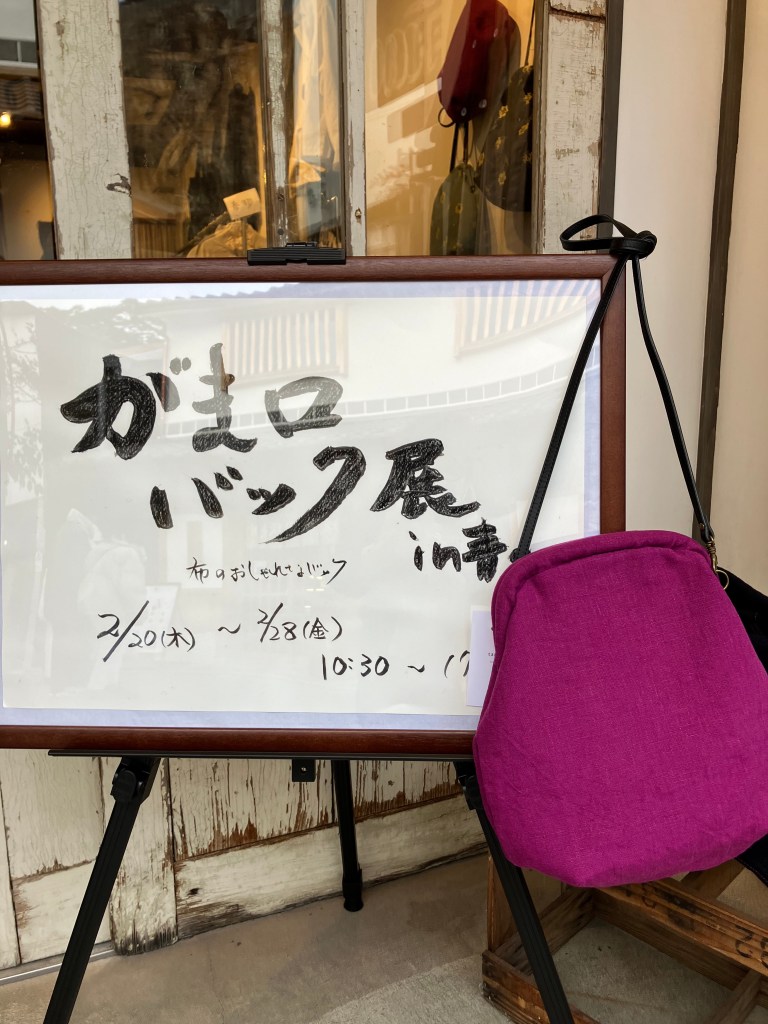 がま口
バック展
in春
布のおしゃれなバック
2/20(木) ~ 2/28(金)
10:30 ~ 17